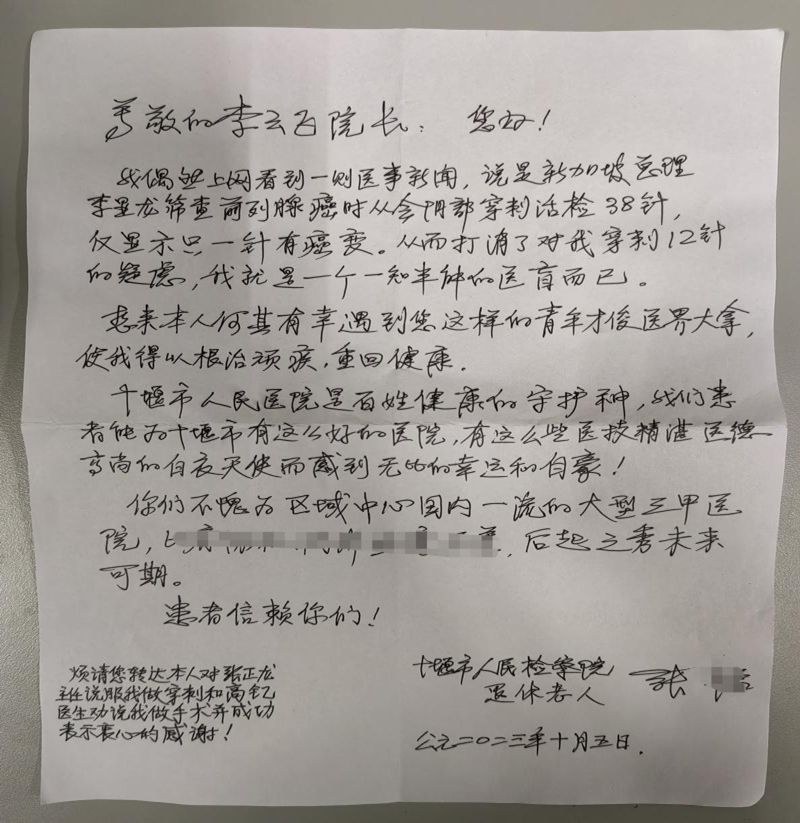 尊敬的李云飞院长：您好！
我偶然上网看到一则医事新闻，说是新加坡总理
李显龙筛查前列腺癌时从会阴部穿刺活检38针，
仅显示只一针有癌变。从而打消了对我穿刺12针
的疑虑，我就是一个一知半解的医盲而已。
想来本人何其有幸遇到您这样的青年才俊医界大拿，
使我得以根治顽疾，重回健康。
十堰市人民医院是百姓健康的守护神，我们患
者能为十堰市有这么好的医院，有这么些医技精湛医德
高尚的白衣天使而感到无比的幸运和自豪！
你们不愧为区域中心国内一流的大型三甲医
院，后起之秀未来
可期。
患者信赖你们！
烦请您转达本人对张正龙
主任说服我做穿刺和高钇
医生劝说我做手术并成功
表示衷心的感谢！
十堰市人民检察院
退休老人 张
公元二〇二三年十月五日.